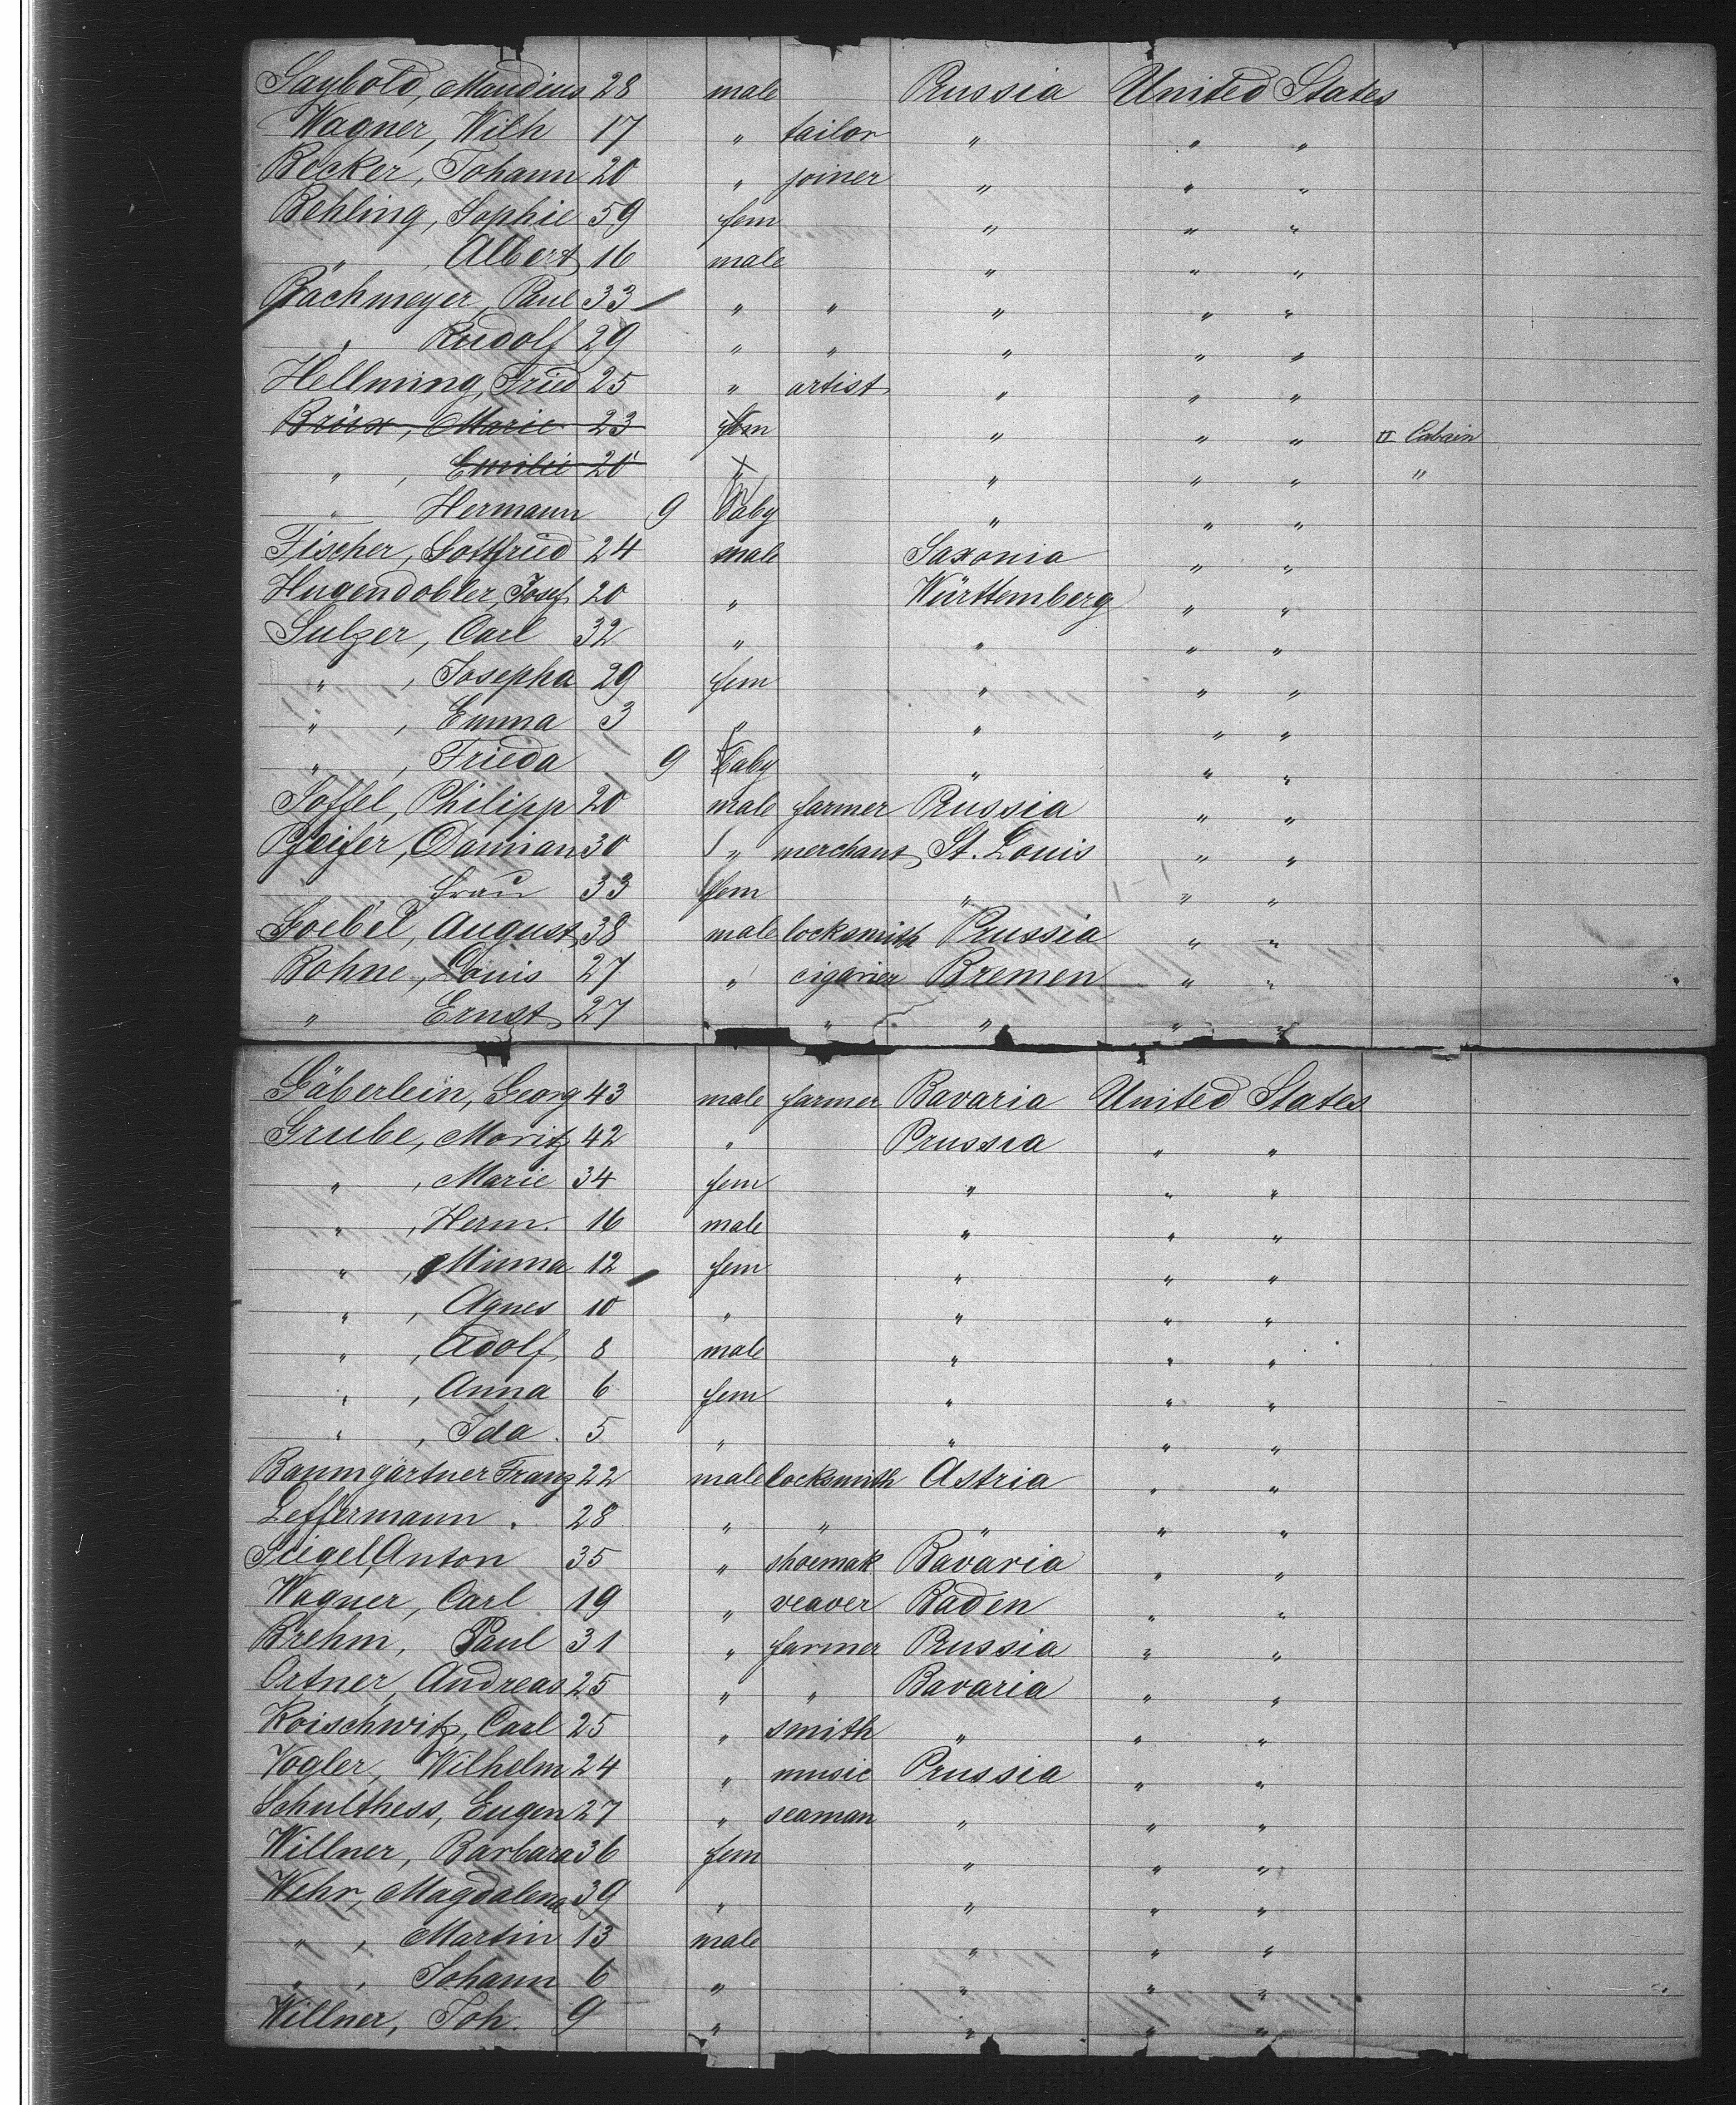 Saybold, Maudius 28 male Prussia United States
Wagner, Wilh 17 " tailor " " "
Becker, Johann 20 " joiner " " "
Behling, Sophie 59 fem " " "
" , Albert 16 male " " "
Bachmeyer, Paul 33 " " " " "
" Rudolf 29 " " " " "
Hellming, Fried 25 " artist " " "
Brüx, Marie 23 fem " " " II Cabin
" , Emilie 20 " " " "
" Hermann 9 baby " " "
Fischer, Gottfried 24 male Saxonia " "
Hugendobler, Josef 20 " Württemberg " "
Sulzer, Carl 32 " " " "
" , Josepha 29 fem " " "
" , Emma 3 " " " "
" , Frieda 9 baby " " "
Joffel, Philipp 20 male farmer Prussia " "
Pfeifer, Damian 30 " merchant St. Louis " "
" , frau 33 fem " " "
Goebel, August 38 male locksmith Prussia " "
Bohne, Louis 27 " cigarier Bremen " "
" Ernst 27 " " " "
Gäberlein, Georg 43 male farmer Bavaria United States
Grube, Moritz 42 " Prussia " "
" , Marie 34 fem " " "
" , Herm. 16 male " " "
" , Minna 12 fem " " "
" , Agnes 10 " " " "
" , Adolf 8 male " " "
" , Anna 6 fem " " "
" , Ida. 5 " " " "
Baumgärtner Franz 22 male locksmith Astria " "
Leffermann . 28 " " " " "
Siegel, Anton 35 " shoemak Bavaria " "
Wagner, Carl 19 " veaver Baden " "
Brehm, Paul 31 " farmer Prussia " "
Ortner, Andreas 25 " " Bavaria " "
Koischwitz, Carl 25 " smith " " "
Vogler, Wilhelm 24 " music Prussia " "
Schulthess, Eugen 27 " seaman " " "
Willner, Barbara 36 fem " " "
Wehr, Magdalena 39 " " " "
" , Martin 13 male " " "
" , Johann 6 " " " "
Willner, Joh. 9 " " " "